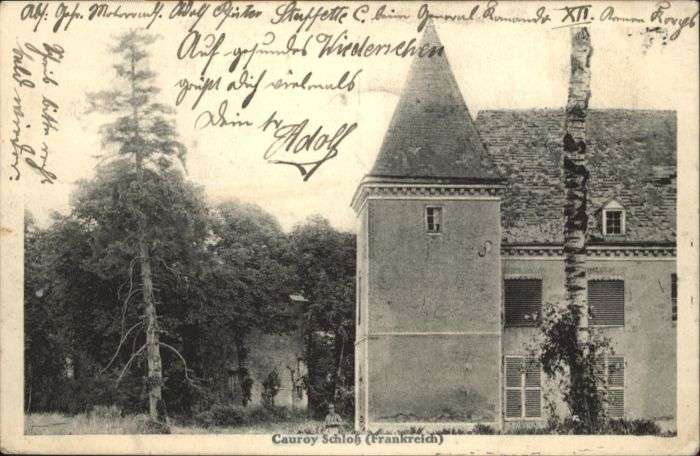 Abs. Gefr. Motorradf. Adolf Pfister Staffette C. beim General Kommando XII. Armee Korps
Auf gesundes Wiedersehen
grüßt Dich vielmals
Dein tr. Adolf
Schreib bitte recht
bald wieder.
Cauroy Schloß (Frankreich)